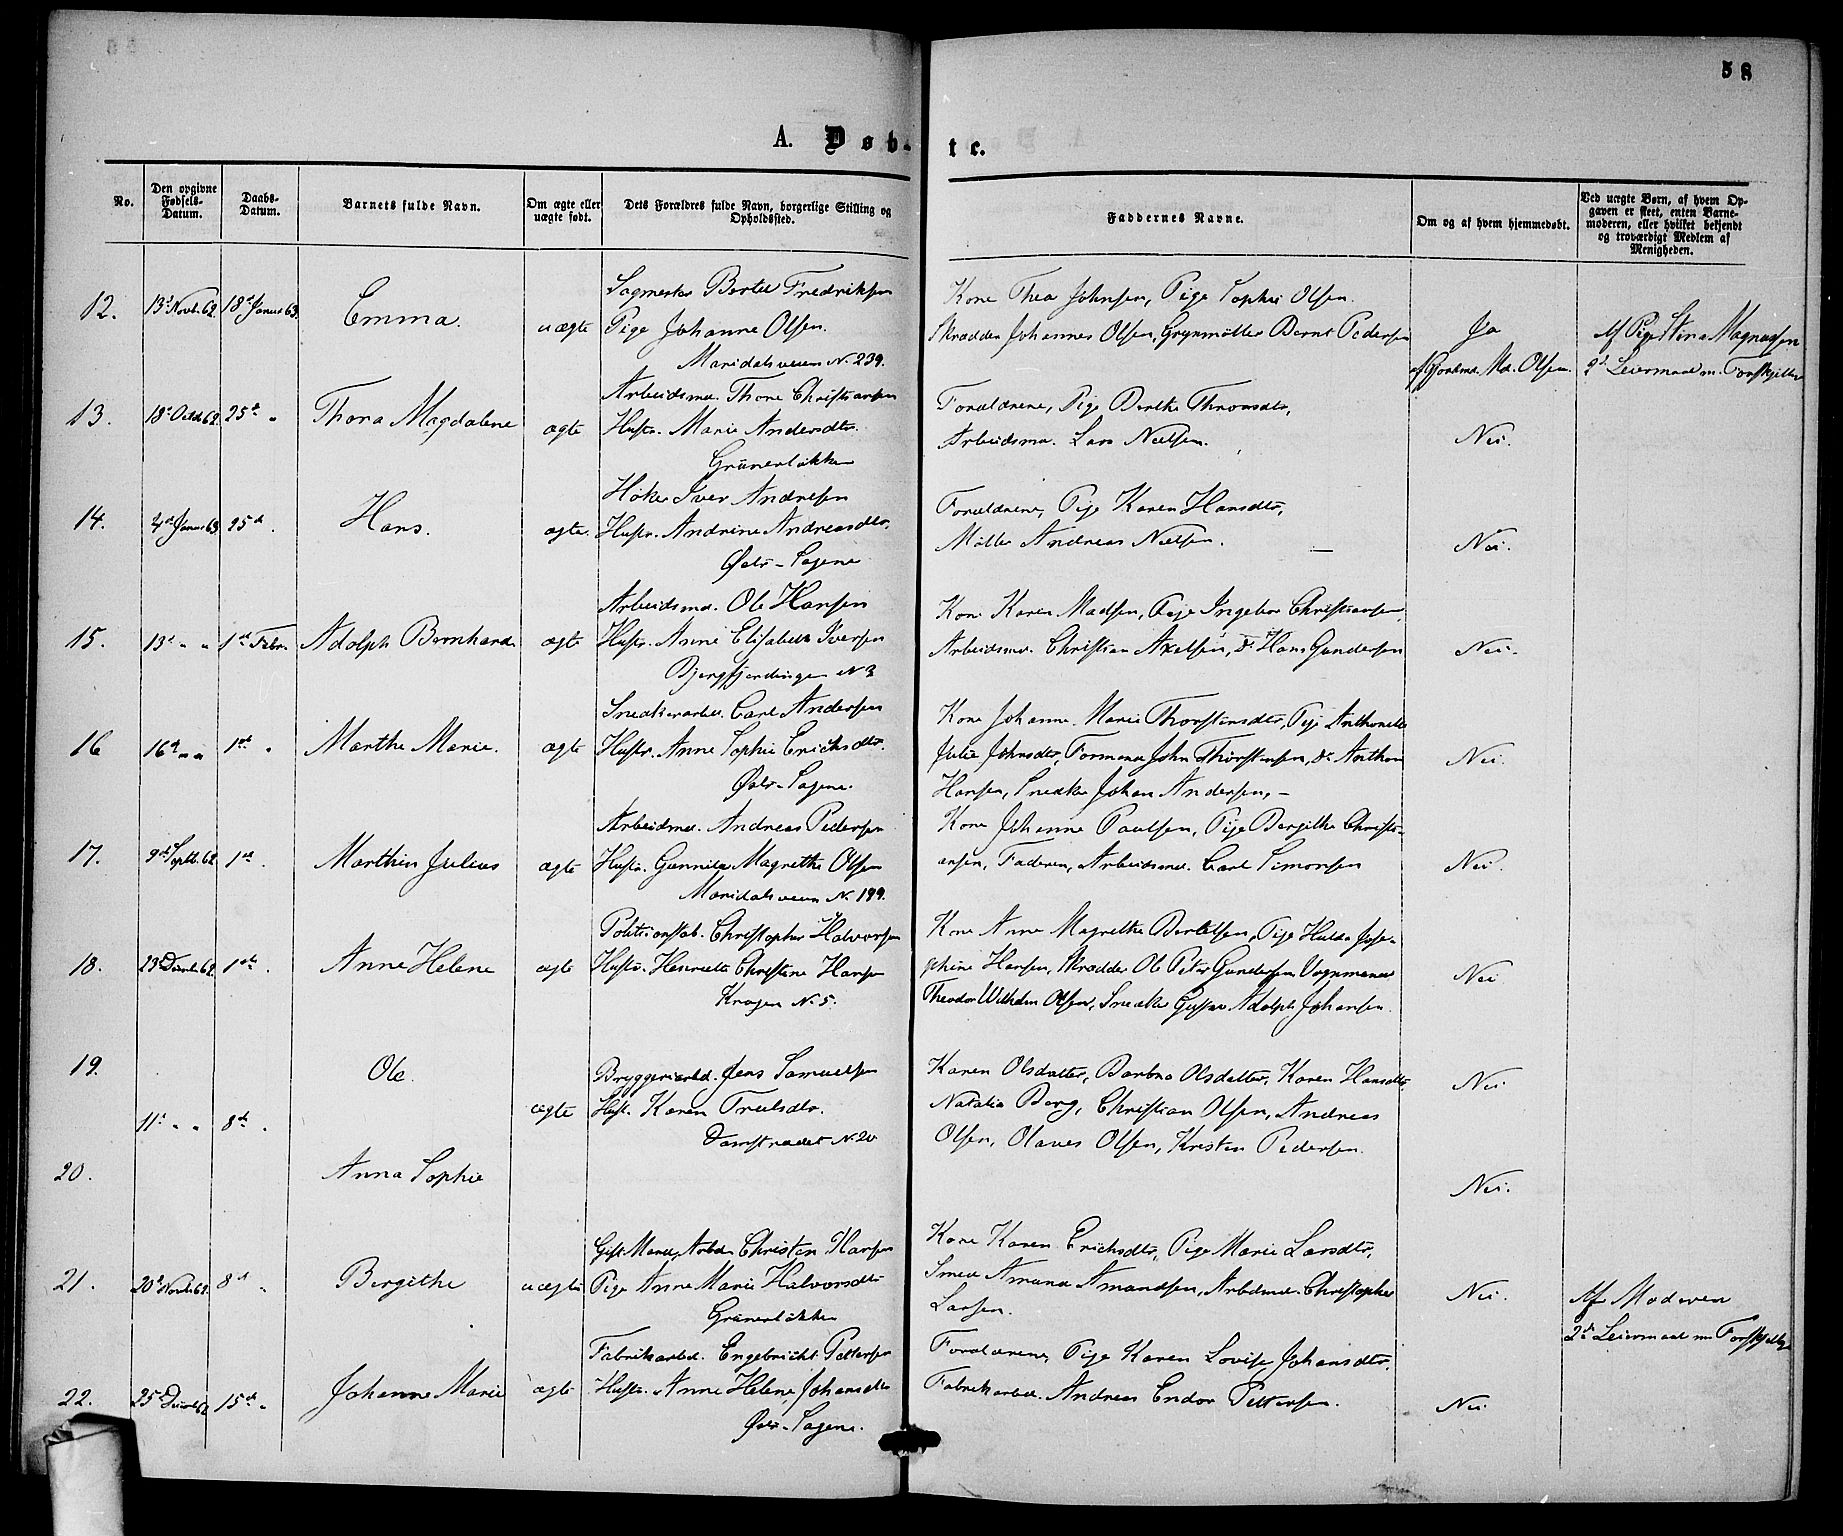 58
A. Døb- te.
No.
Den opgivne Fødsels-Datum.
Daabs-Datum.
Barnets fulde Navn.
Om ægte eller uægte født.
Dets Forældres fulde Navn, borgerlige Stilling og Opholdssted.
Faddernes Navne.
Om og af hvem hjemmedøbt.
Ved uægte Børn, af hvem Opgaven er skeet, enten Barnemoderen, eller hvilket bekjendt og troværdigt Medlem af Menigheden.
12. 13d Novb. 62. 18d Januar 63. Emma. uægte
Sagmester Bertel Fredriksen
Pige Johanne Olsen.
Maridalsveien N. 239.
Kone Thea Johnsen, Pige Sophie Olsen.
Skrædder Johannes Olsen, Grynmøller Bernt Pedersen
Ja
af Jordmd. Md. Olsen.
Af Pige Stina Magnussen
2d Leiermaal m. Forskjellige
13. 18d Octob 62. 25d " Thora Magdalene ægte
Arbeidsmd. Thore Christiansen
Hustr. Marie Andersdtr.
Grünerløkken
Forældrene, Pige Berthe Thronsdtr,
Arbeidsmd. Lars Nielsen.
Nei.
14. 4d Januar 63 25d . Hans. ægte.
Høker Iver Andresen
Hustr. Andrine Andreasdtr.
Øvre-Sagene
Forældrene, Pige Karen Hansdtr,
Møller Andreas Nielsen. —
Nei.
15. 13d " " 1d Febr. Adolph Bernhard ægte
Arbeidsmd. Ole Hansen
Hustr. Anne Elisabeth Iversen
Bjergfjerdingen N 3
Kone Karen Madsen, Pige Ingebor Christiansen,
Arbeidsmd. Christian Axelsen, do Hans Gundersen
Nei.
16 16d " " 1d " Marthe Marie. ægte
Snedkerarbd. Carl Andersen
Hustr. Anne Sophie Erichsdtr.
Øvre-Sagene.
Kone Johanne Marie Thorstensdtr, Pige Anthonette
Julie Johnsdtr, Formand John Thorstensen, do Anthon
Hansen, Snedker Johan Andersen, —
Nei.
17. 9d Septb. 62 1d . Marthin Julius ægte
Arbeidsmd. Andreas Pedersen
Hustr. Gunnild Magrethe Olsen
Maridalsveien N. 199.
Kone Johanne Paulsen, Pige Bergithe Christi-
ansen, Faderen, Arbeidsmd. Carl Simonsen
Nei.
18. 23d Decmb 62. 1d . Anne Helene ægte
Politikonstab. Christopher Halvorsen
Hustr. Henriette Christine Hansen
Krogen N. 5.
Kone Anne Magrethe Bertelsen, Pige Hulda Jose-
phine Hansen, Skrædder Ole Peter Gundersen Vognmand
Theodor Wilhelm Olsen, Snedker Gustav Adolph Johansen.
Nei
19. Ole.
11d " " 8d . ægte
Bryggeriarbd. Jens Samuelsen
Hustr. Karen Trulsdtr.
Damstrædet N. 20
Karen Olsdatter, Barbra Olsdatter, Karen Hansdtr,
Natalia Berg, Christian Olsen, Andreas
Olsen, Olaves Olsen, Kristen Pedersen.
Nei
20. Anna Sophie
Nei.
21. 20d Novb 62. 8d " Bergithe uægte
Gift Mand, Arbd. Christen Hansen
Pige Anne Marie Halvorsdtr
Grünerløkken
Kone Karen Erichsdtr, Pige Marie Larsdtr,
Smed Amund Amundsen, Arbdmd. Christopher
Larsen.
Nei.
Af Moderen
2d Leiermaal m Forskjellige
22. 25d Decmb 62 15d " Johanne Marie ægte
Fabrikarbd. Engebricht Pettersen
Hustr. Anne Helene Johansdtr
Øvre-Sagene.
Forældrene, Pige Karen Lovise Johansdtr.
Fabrikarbd. Andreas Endor Pettersen.
Nei